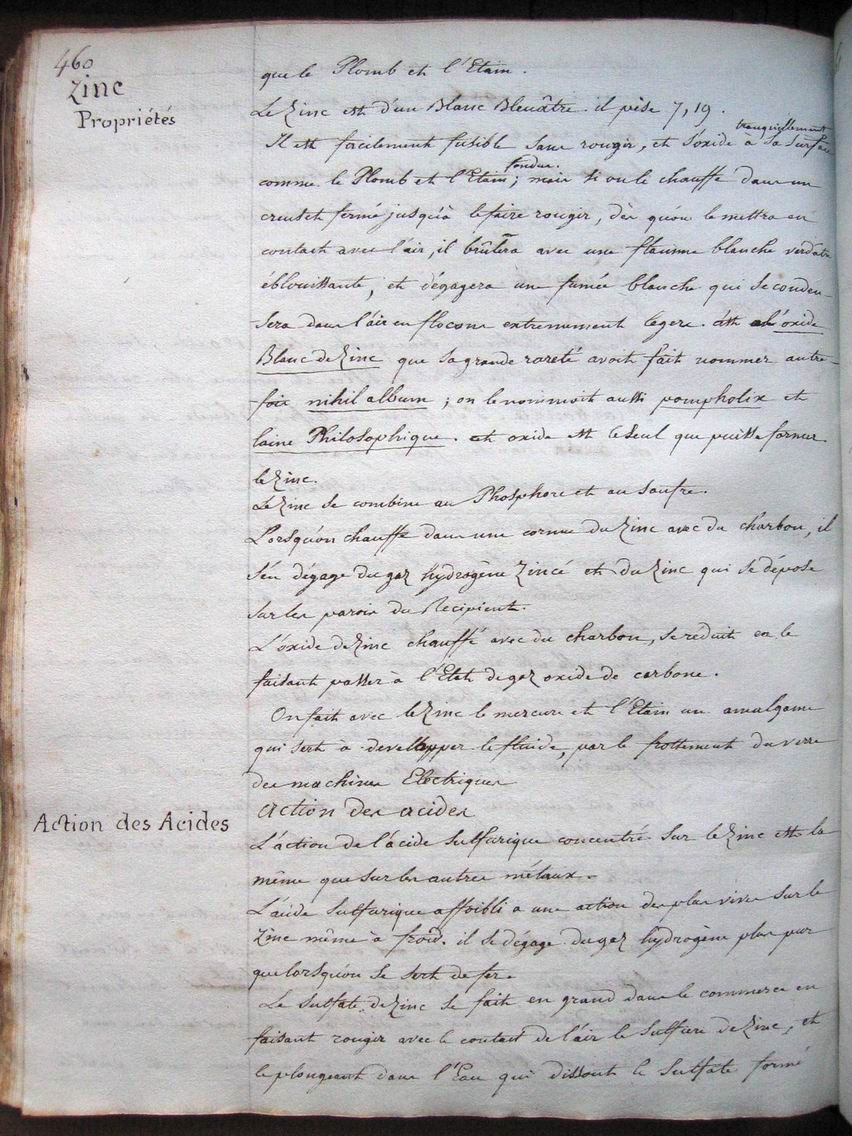 460
Zinc
Propriétés
que le Plomb et l'Etain.
Le Zinc est d'un Blanc Bleuâtre. il pèse 7,19.
tranquillement
Il est facilement fusible sans rougir, et s'oxide à sa surface
fondus.
comme le Plomb et l'Etain; mais si on le chauffe dans un
creuset fermé jusqu'à le faire rougir, dès qu'on le mettra en
contact avec l'air, il brûlera avec une flamme blanche verdatre
éblouissante, et dégagera un fumée blanche qui se conden-
sera dans l'air en flocons extremement legers. cet oxide
Blanc de Zinc que sa grande rareté avoit fait nommer autre-
fois nihil album; on le nommoit aussi pompholix et
laine Philosophique. cet oxide est le seul que puisse former
le Zinc.
Le Zinc se combine au Phosphore et au soufre.
Lorsqu'on chauffe dans une cornue du Zinc avec du charbon, il
s'en dégage du gaz hydrogène Zincé et du Zinc qui se dépose
sur les parois du Recipient.
L'oxide de Zinc chauffé avec du charbon, se reduit en le
faisant passer à l'Etat de gaz oxide de carbone.
On fait avec le Zinc le mercure et l'Etain un amalgame
qui sert à developper le fluide, par le frottement du verre
des machines Electriques
Action des acides
Action des Acides
L'action de l'acide sulfurique concentré sur le Zinc est la
même que sur les autres métaux.
L'acide sulfurique affoibli a une action des plus vives sur le
Zinc même à froid. il se dégage du gaz hydrogène plus pur
que lorsqu'on se sert de fer.
Le sulfate de Zinc se fait en grand dans le commerce en
faisant rougir avec le contact de l'air le sulfure de Zinc, et
le plongeant dans l'Eau qui dissout le sulfate formé